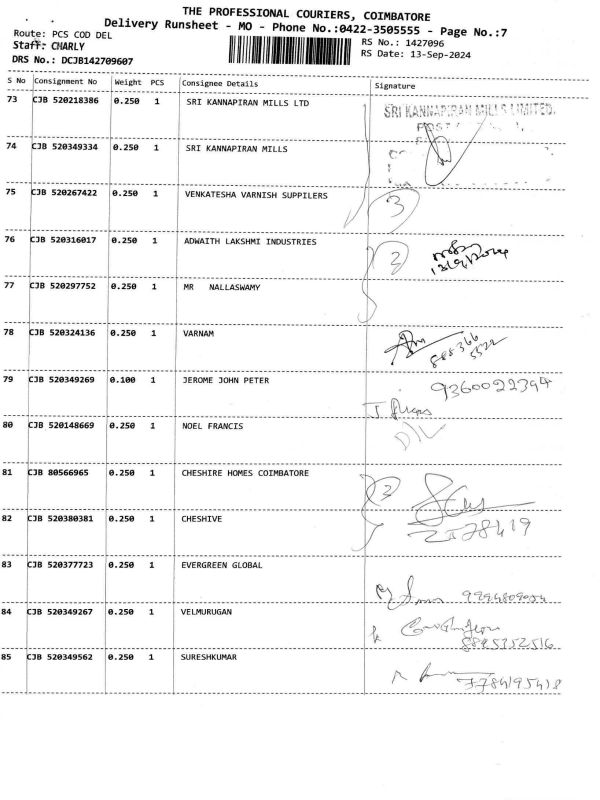 THE PROFESSIONAL COURIERS, COIMBATORE
Delivery Runsheet - MO - Phone No.:0422-3505555 - Page No.:7
Route: PCS COD DEL
RS No.: 1427096
Staff: CHARLY
RS Date: 13-Sep-2024
DRS No.: DCJB142709607
S No Consignment No Weight PCS Consignee Details Signature
73 CJB 520218386 0.250 1 SRI KANNAPIRAN MILLS LTD SRI KANNAPIRAN MILLS LIMITED.
POST
74 CJB 520349334 0.250 1 SRI KANNAPIRAN MILLS
75 CJB 520267422 0.250 1 VENKATESHA VARNISH SUPPILERS 3
76 CJB 520316017 0.250 1 ADWAITH LAKSHMI INDUSTRIES 2
13/9/2024
77 CJB 520297752 0.250 1 MR NALLASWAMY
78 CJB 520324136 0.250 1 VARNAM
888366
5522
79 CJB 520349269 0.100 1 JEROME JOHN PETER 9360022394
80 CJB 520148669 0.250 1 NOEL FRANCIS D/L
81 CJB 80566965 0.250 1 CHESHIRE HOMES COIMBATORE 2
82 CJB 520380381 0.250 1 CHESHIVE
83 CJB 520377723 0.250 1 EVERGREEN GLOBAL
84 CJB 520349267 0.250 1 VELMURUGAN
8895352516
85 CJB 520349562 0.250 1 SURESHKUMAR
7784195418